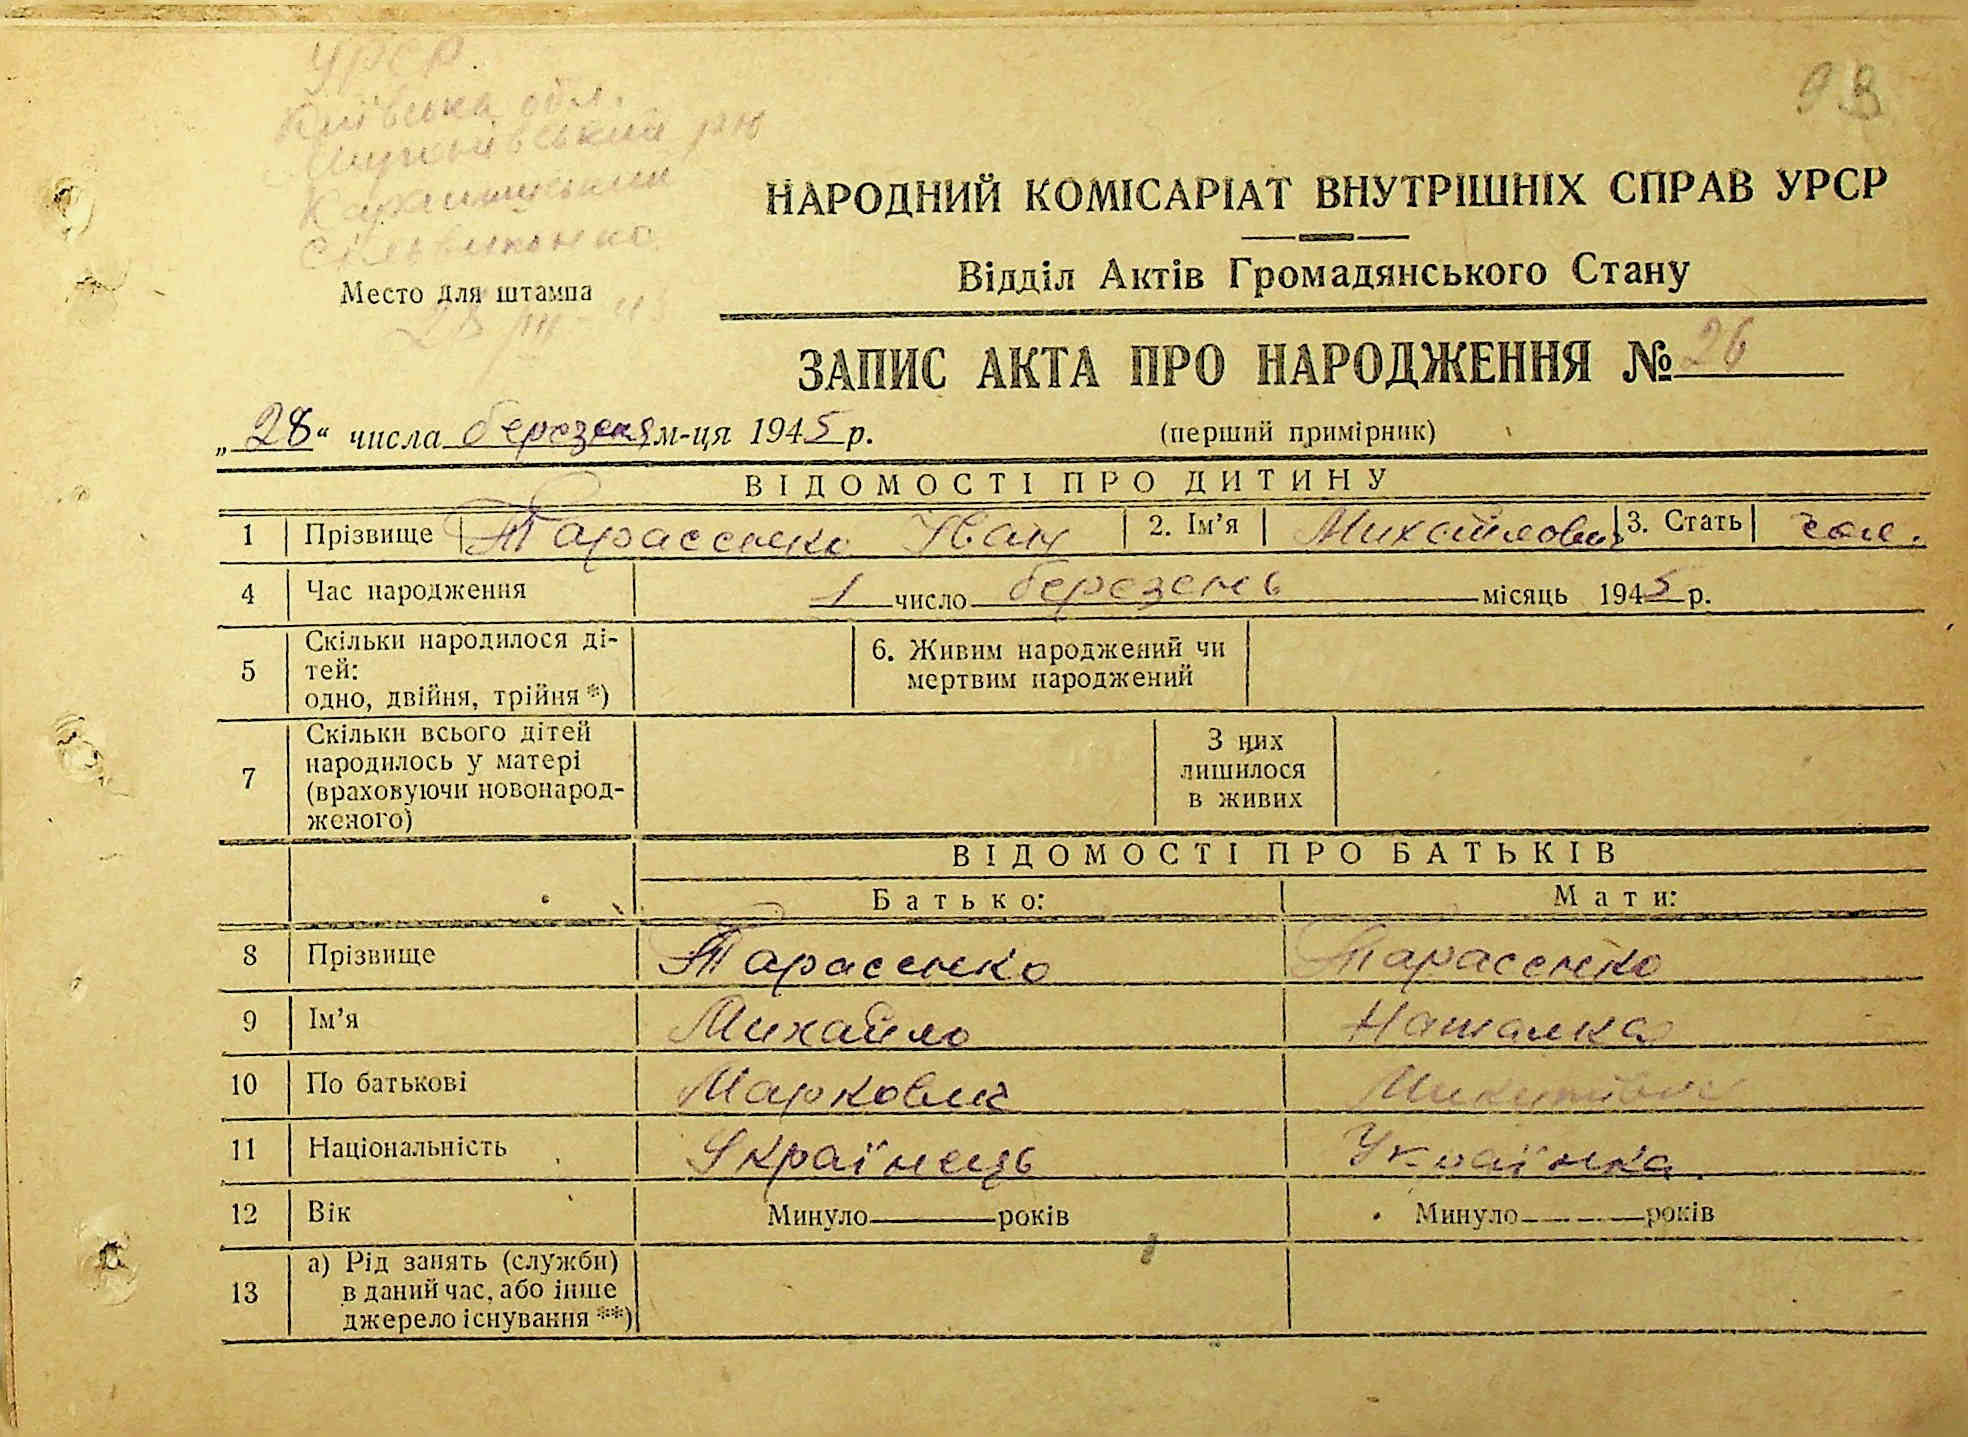 УРСР
Київська обл.
рн
93
НАРОДНИЙ КОМІСАРІАТ ВНУТРІШНІХ СПРАВ УРСР
Відділ Актів Громадянського Стану
Место для штампа
28/III-45
ЗАПИС АКТА ПРО НАРОДЖЕННЯ № 26
„28“ числа березеня м-ця 1945 р.
(перший примірник)
ВІДОМОСТІ ПРО ДИТИНУ
1 Прізвище Тарасенко Іван 2. Ім’я Михайлович 3. Стать чол.
4 Час народження 1 число березень місяць 1945 р.
5 Скільки народилося ді-
тей:
одно, двійня, трійня *)
6. Живим народжений чи
мертвим народжений
7 Скільки всього дітей
народилось у матері
(враховуючи новонарод-
женого)
З них
лишилося
в живих
ВІДОМОСТІ ПРО БАТЬКІВ
Батько: Мати:
8 Прізвище Тарасенко Тарасенко
9 Ім’я Михайло Наталка
10 По батькові Маркович Микитівна
11 Національність Українець Українка
12 Вік Минуло років Минуло років
13 а) Рід занять (служби)
в даний час, або інше
джерело існування **)